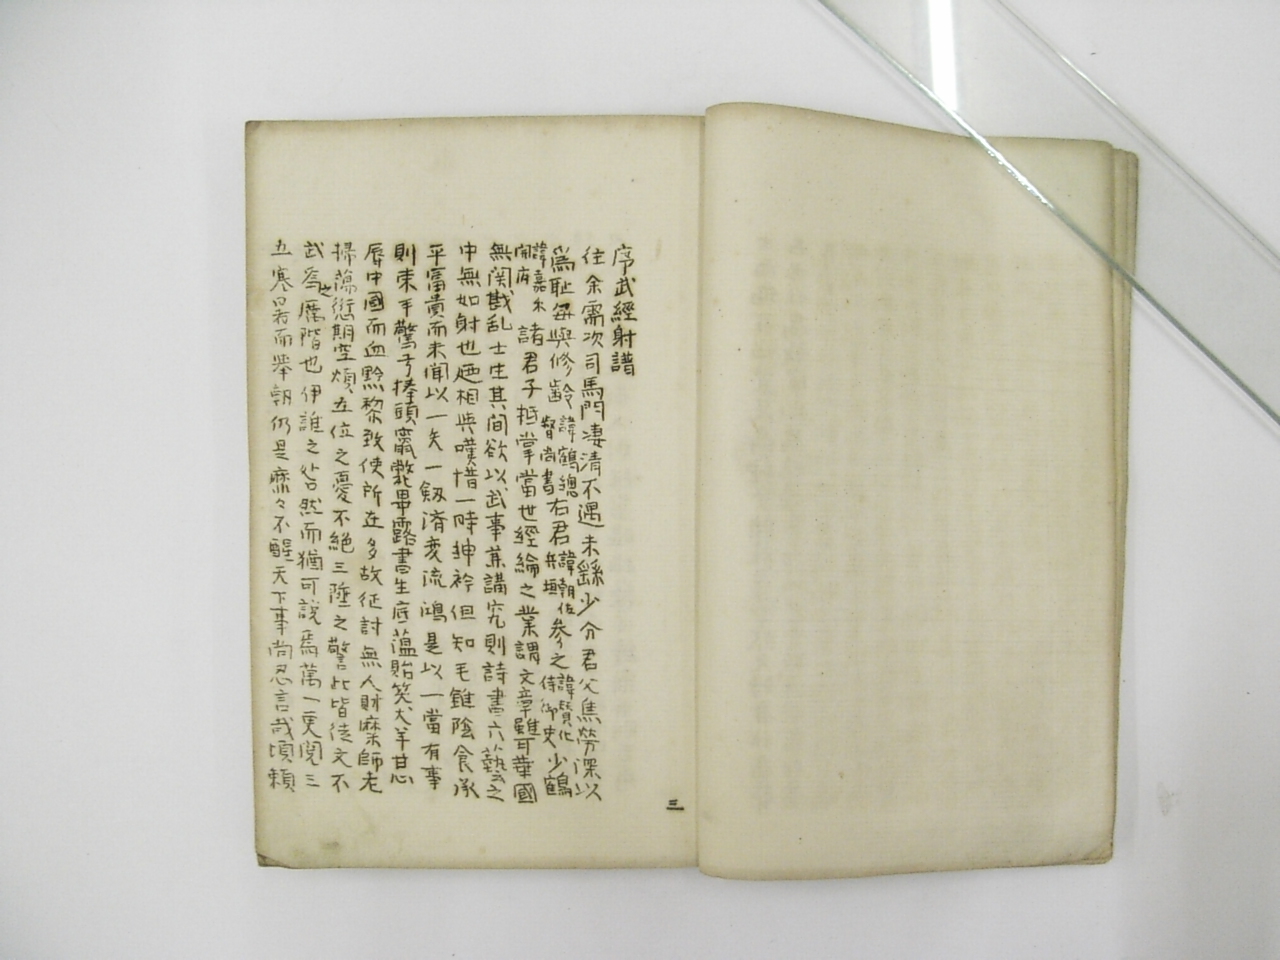 序武經射譜
往余需次司馬門凄清不遇未繇少介君父焦勞深以
爲耻每與修齡諱鶴總督尚書右君諱朝佐井垣參之諱贊化侍御史少鶴
諱嘉禾開府諸君子抵掌當世經綸之業謂文章雖可華國
無関戡乱士生其間欲以武事兼講究則詩書六藝之
中無如射也廼相與嘆惜一時紳衿但知毛錐陰食承
平富貴而未聞以一矢一剱濟変流鴻是以一當有事
則束手驚予捧頭竄斃畢露書生底蘊貽笑犬羊甘心
辱中國而血黔黎致使所在多故征討無人財糜師老
掃蕩愆期空煩五位之憂不絕三陲之警此皆徒文不
武之爲厲階也伊誰之咎然而猶可説焉萬一更閱三
五寒暑而舉朝仍是糜々不醒天下事尚忍言哉頃賴
三